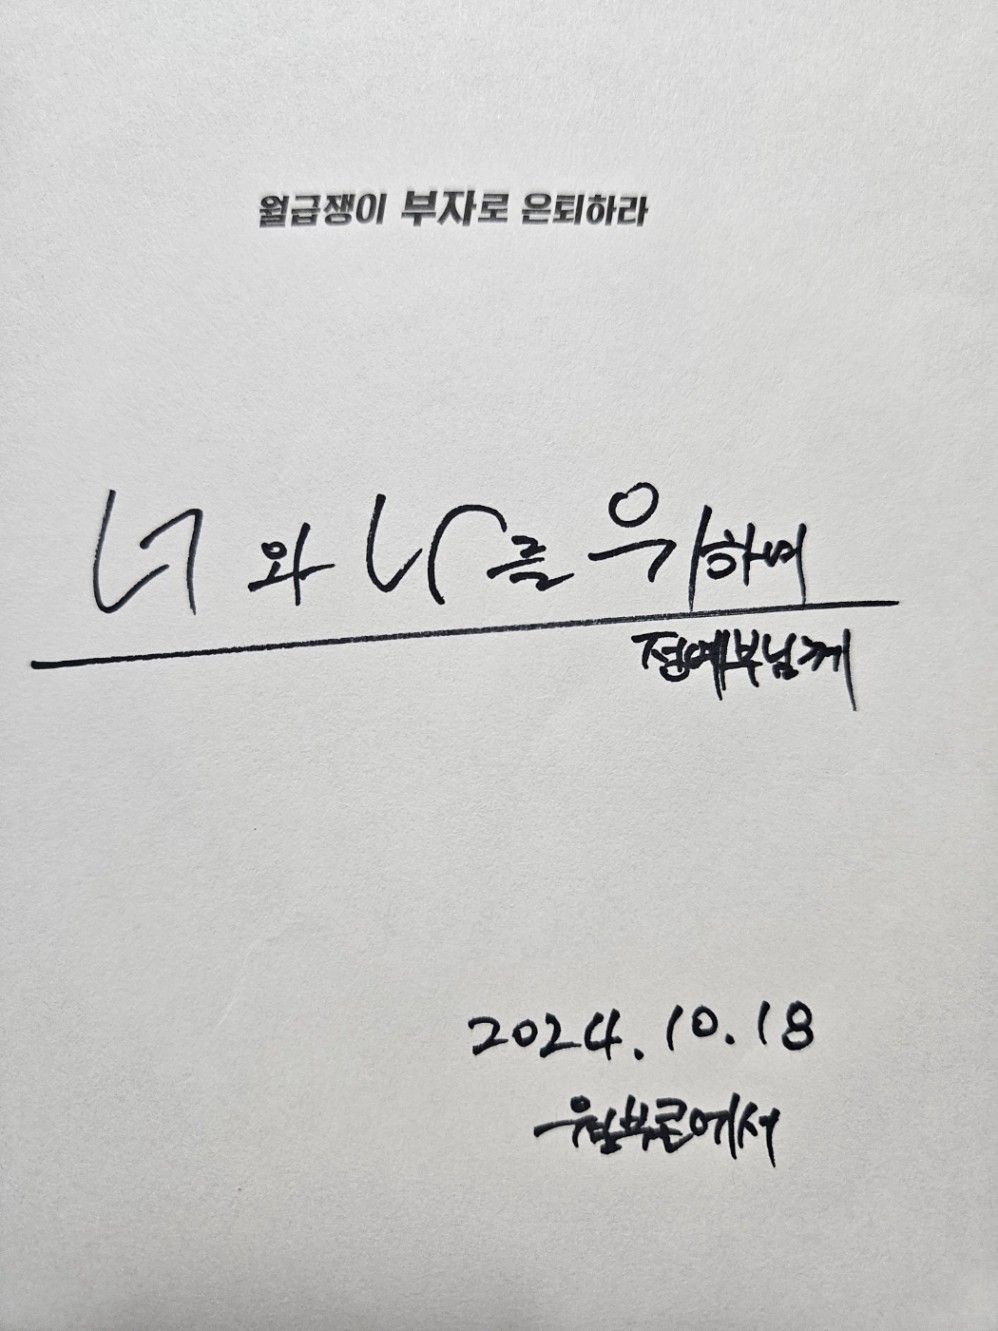 월급쟁이 부자로 은퇴하라
너와 나를 위하여
정예부님께
2024.10.18
월부콘에서